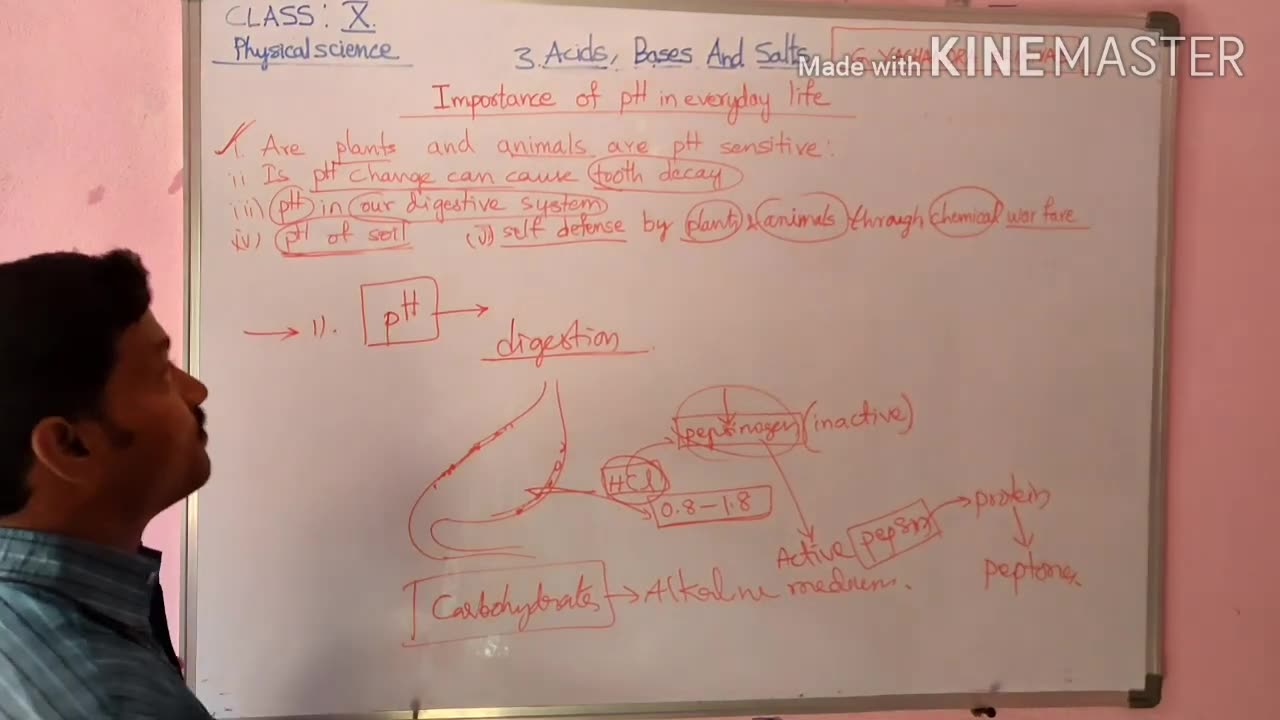 CLASS: X.
Physical science
3. Acids, Bases And Salts
Made with KINEMASTER
Importance of pH in everyday life
1. Are plants and animals are pH sensitive:
ii Is pH change can cause tooth decay
iii) pH in our digestive system
iv) pH of soil (v) self defense by plants & animals through chemical war fare
1). pH
digestion
pepsinogen (inactive)
HCl
0.8-1.8
Active pepsin
protein
peptones
Carbohydrates Alkaline medium.